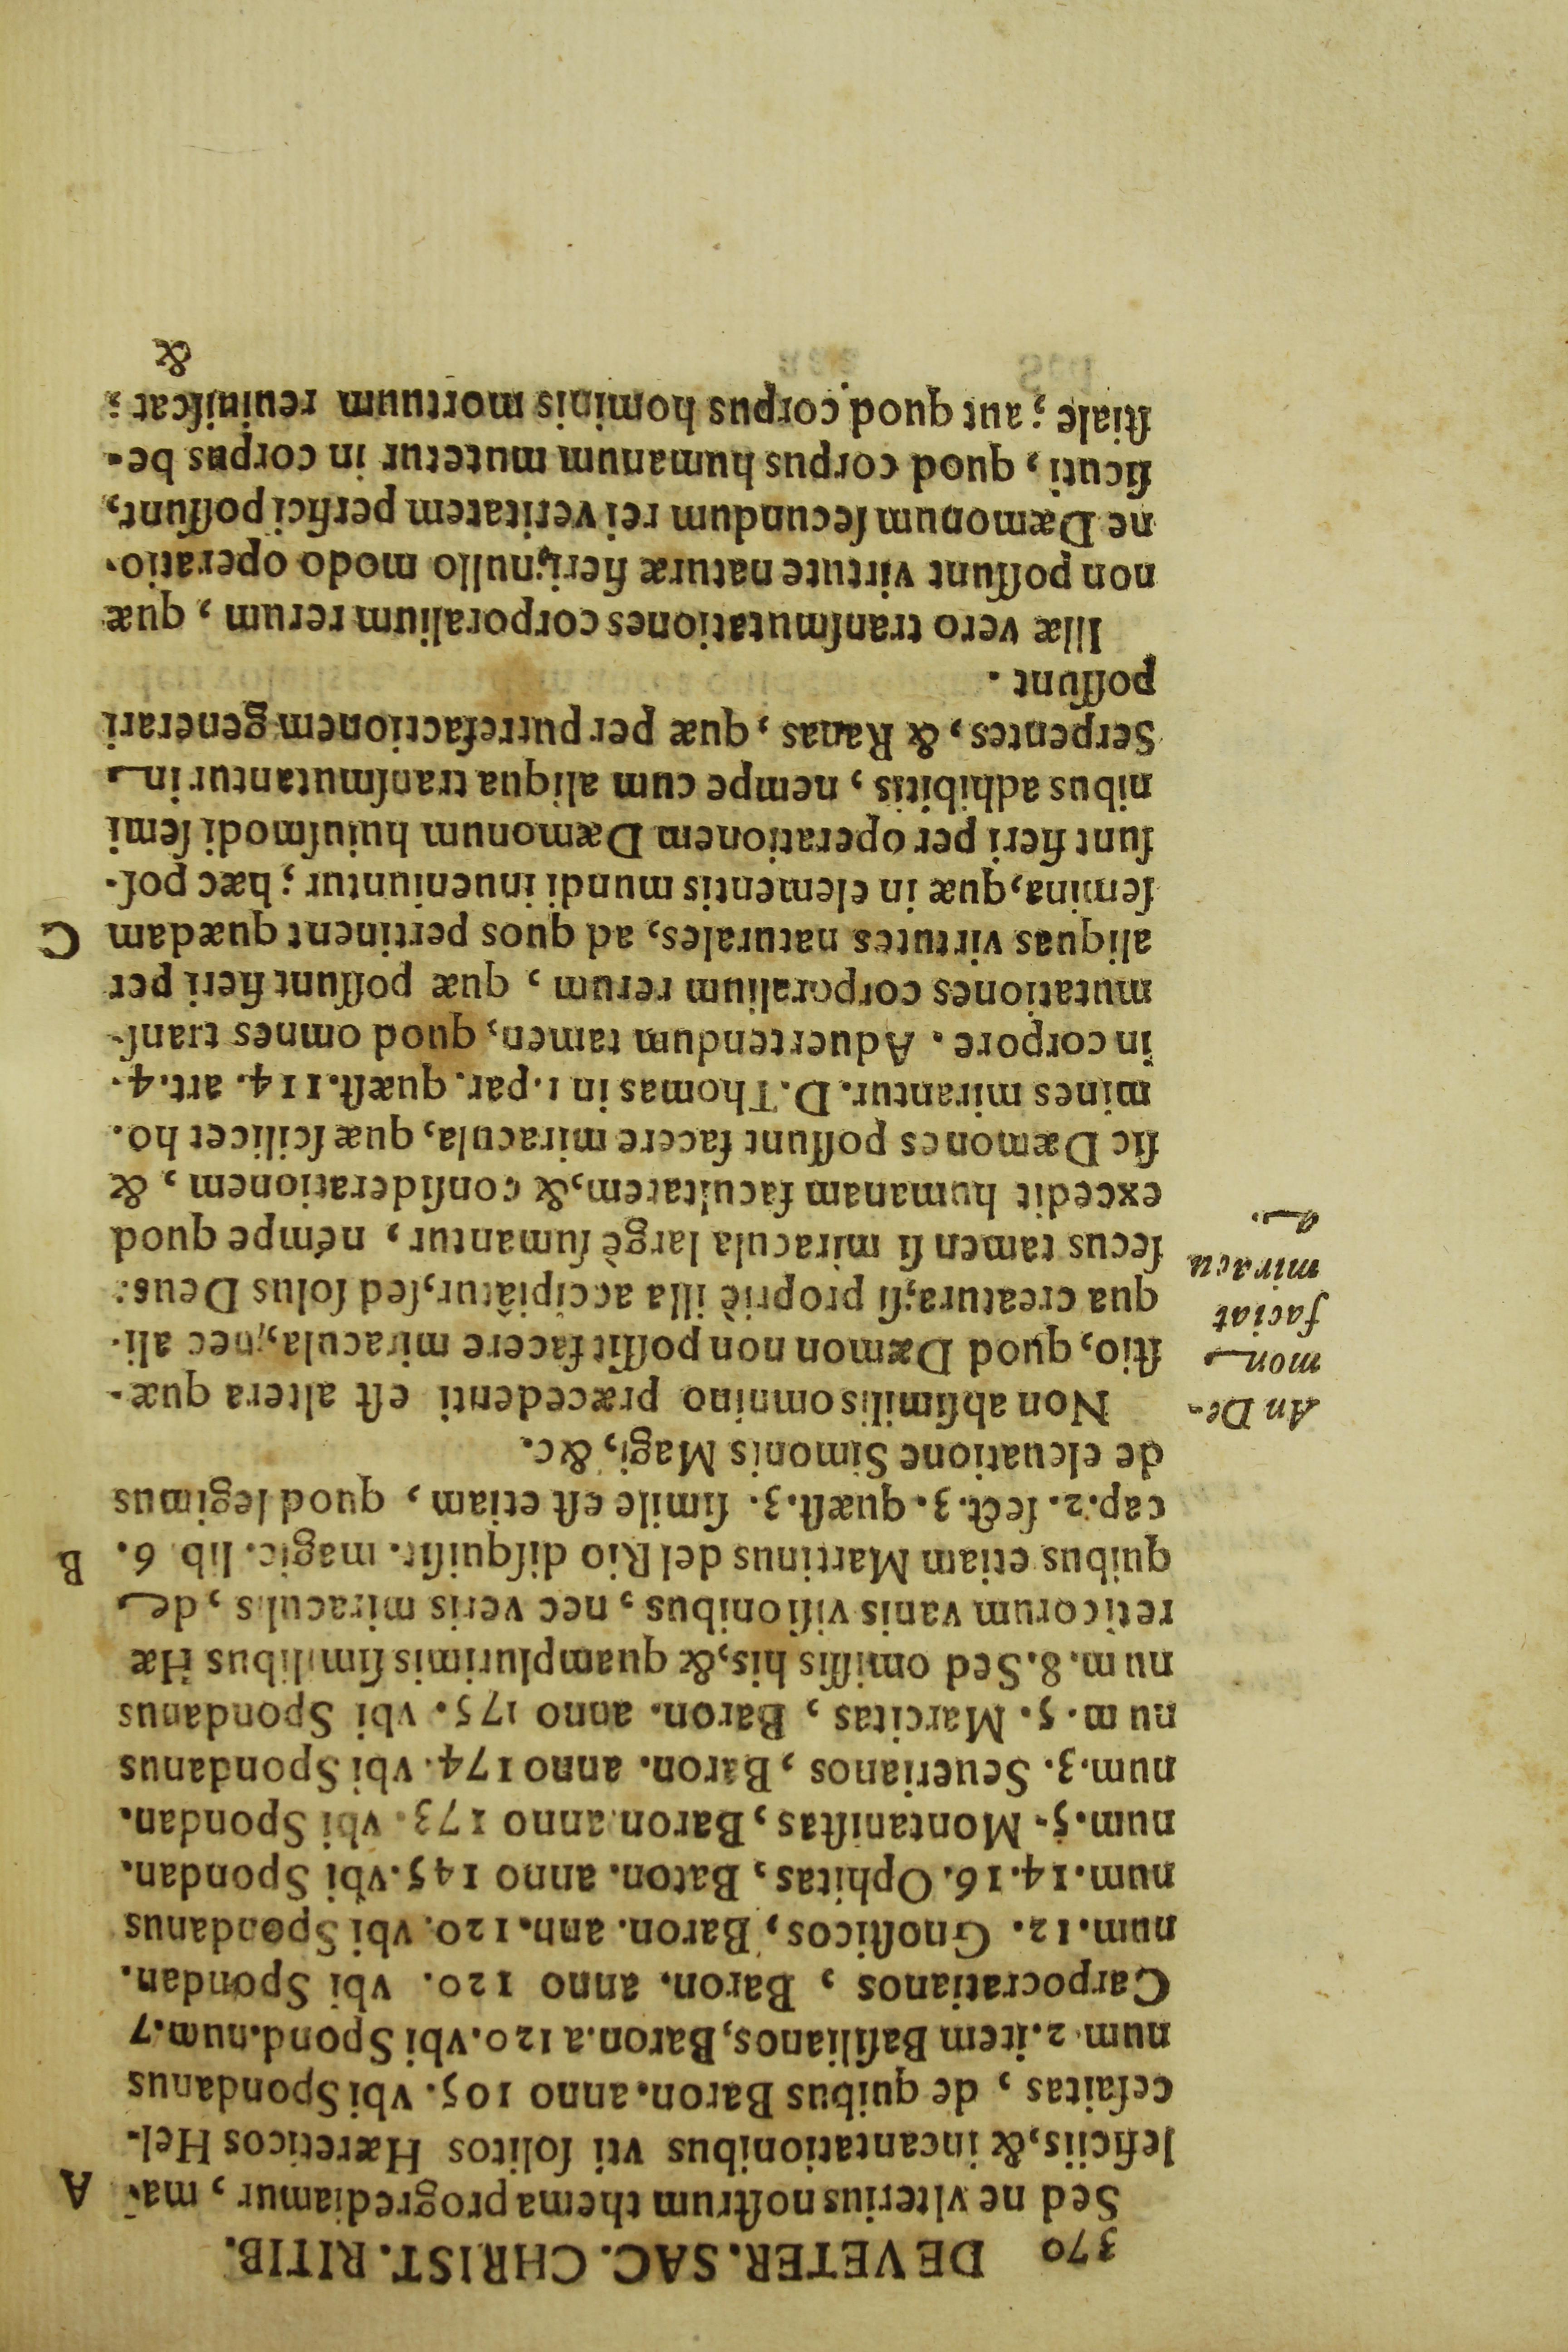 370 DE VETER. SAC. CHRIST. RITIB.
Sed ne vlterius nostrum thema progrediamur, ma- A
leficiis, & incantationibus vti solitos Hæreticos Hel-
cesaitas, de quibus Baron. anno 105. vbi Spondanus
num. 2. item Basilianos, Baron. a 120. vbi Spond. num. 7
Carpocratianos, Baron. anno 120. vbi Spondan.
num. 12. Gnosticos, Baron. ann. 120. vbi Spondanus
num. 14. 16. Ophitas, Baron. anno 145. vbi Spondan.
num. 5. Montanistas, Baron anno 173. vbi Spondan.
num. 3. Seuerianos, Baron. anno 174. vbi Spondanus
num. 5. Marcitas, Baron. anno 175. vbi Spondanus
num. 8. Sed omissis his, & quamplurimis similibus Hæ
reticorum vanis visionibus, nec veris miraculis, de
quibus etiam Martinus del Rio disquisit. magic. lib 6. B
cap. 2. sect. 3. quæst. 3. simile est etiam, quod legimus
de eleuatione Simonis Magi, &c.
Non absimilis omnino præcedenti est altera quæ-
stio, quod Dæmon non possit facere miracula, nec ali-
qua creatura; si propriè illa accipiātur, sed solus Deus:
secus tamen si miracula largè sumantur, nempe quod
excedit humanam facultatem, & considerationem, &
sic Dæmones possunt facere miracula, quæ scilicet ho-
mines mirantur. D. Thomas in 1. par. quæst. 114. art. 4.
in corpore. Aduertendum tamen, quod omnes trans-
mutationes corporalium rerum, quæ possunt fieri per
aliquas virtutes naturales, ad quos pertinent quædam C
semina, quæ in elementis mundi inueniuntur; hæc pos-
sunt fieri per operationem Dæmonum huiusmodi semi
nibus adhibitis, nempe cum aliqua transmutantur in
Serpentes, & Ranas, quæ per putrefactionem generari
possunt.
Illæ vero transmutationes corporalium rerum, quæ
non possunt virtute naturæ fieri, nullo modo operatio-
ne Dæmonum secundum rei veritatem perfici possunt,
sicuti, quod corpus humanum mutetur in corpus be-
stiale; aut quod corpus hominis mortuum reuiuiscat;
&
An De-
mon
faciat
miracu
a.